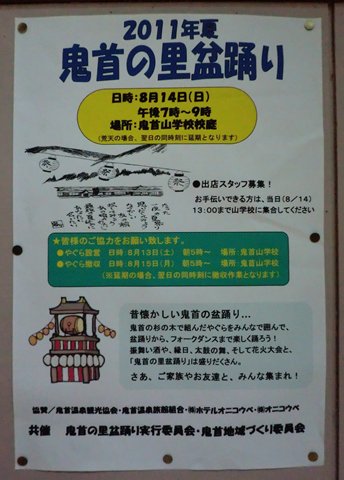 2011年夏
鬼首の里盆踊り
日時:8月14日(日)
午後7時~9時
場所:鬼首山学校校庭
(荒天の場合、翌日の同時刻に延期となります)
●出店スタッフ募集!
お手伝いできる方は、当日(8/14)
13:00まで山学校に集合してください
★皆様のご協力をお願い致します。
●やぐら設営 日時:8月13日(土) 朝5時~ 場所:鬼首山学校
●やぐら撤収 日時:8月15日(月) 朝5時~ 場所:鬼首山学校
(※延期の場合、翌日の同時刻に撤収作業となります)
昔懐かしい鬼首の盆踊り…
鬼首の杉の木で組んだやぐらをみんなで囲んで、
盆踊りから、フォークダンスまで楽しく踊ろう!
振舞い酒や、縁日、太鼓の舞、そして花火大会と、
「鬼首の里盆踊り」は盛りだくさん。
さあ、ご家族やお友達と、みんな集まれ!
協賛/鬼首温泉観光協会・鬼首温泉旅館組合・㈱ホテルオニコウベ・㈱オニコウベ
共催 鬼首の里盆踊り実行委員会・鬼首地域づくり委員会